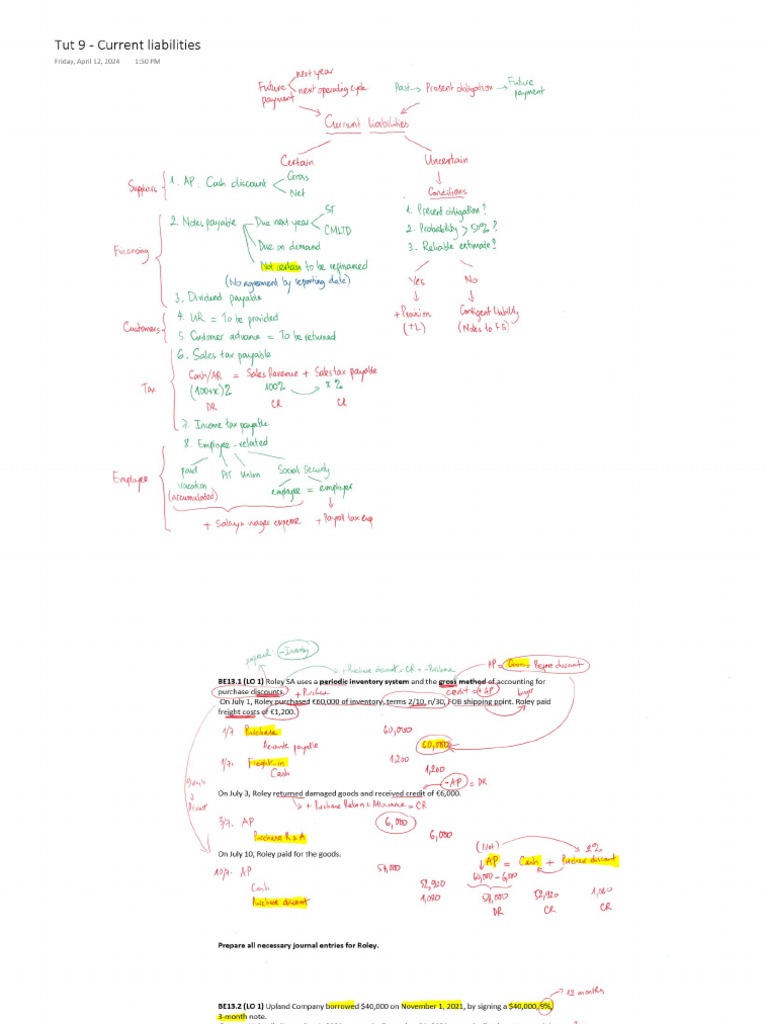 Tut 9 - Current liabilities
Friday, April 12, 2024 1:50 PM
Future payment
next year
next operating cycle
Past → Present obligation → Future payment
Current liabilities
Certain
Uncertain
Suppliers
1. AP: Cash discount
Gross
Net
Conditions
1. Present obligation?
2. Probability > 50%?
3. Reliable estimate?
Yes
No
+ Provision
(+L)
Contigent liability
(Notes to FS)
Financing
2. Notes payable
Due next year
ST
CMLTD
Due on demand
Not certain to be refinanced
(No agreement by reporting date)
3. Dividend payable
Customers
4. UR = To be provided
5. Customer advance = To be returned
Tax
6. Sales tax payable
Cash/AR = Sales Revenue + Sales tax payable
(100+x)% 100% x%
DR CR CR
7. Income tax payable
Employee
8. Employee-related
paid vacation
(Accumulated)
PIT
Union
Social Security
employee = employer
+ Salary & wages expense
+ Payroll tax exp
perpetual: - Inventory
+ Purchase discount = CR = - Purchase
AP = Gross = Before discount
BE13.1 (LO 1) Roley SA uses a periodic inventory system and the gross method of accounting for
purchase discounts.
+ Purchase
credit = + AP
buyer
On July 1, Roley purchased €60,000 of inventory, terms 2/10, n/30, FOB shipping point. Roley paid
freight costs of €1,200.
1/7. Purchase 60,000
Accounts payable 60,000
1/7. Freight-in 1,200
Cash 1,200
9 days
- AP = DR
On July 3, Roley returned damaged goods and received credit of €6,000.
+ Purchase Return & Allowance = CR
3/7. AP 6,000
Purchase R & A 6,000
On July 10, Roley paid for the goods.
10/7. AP 54,000
Cash 52,920
Purchase discount 1,080
(Net) 2%
AP = Cash + Purchase discount
60,000 - 6,000
54,000 52,920 1,080
DR CR CR
Prepare all necessary journal entries for Roley.
12 months
BE13.2 (LO 1) Upland Company borrowed $40,000 on November 1, 2021, by signing a $40,000, 9%,
3-month note.